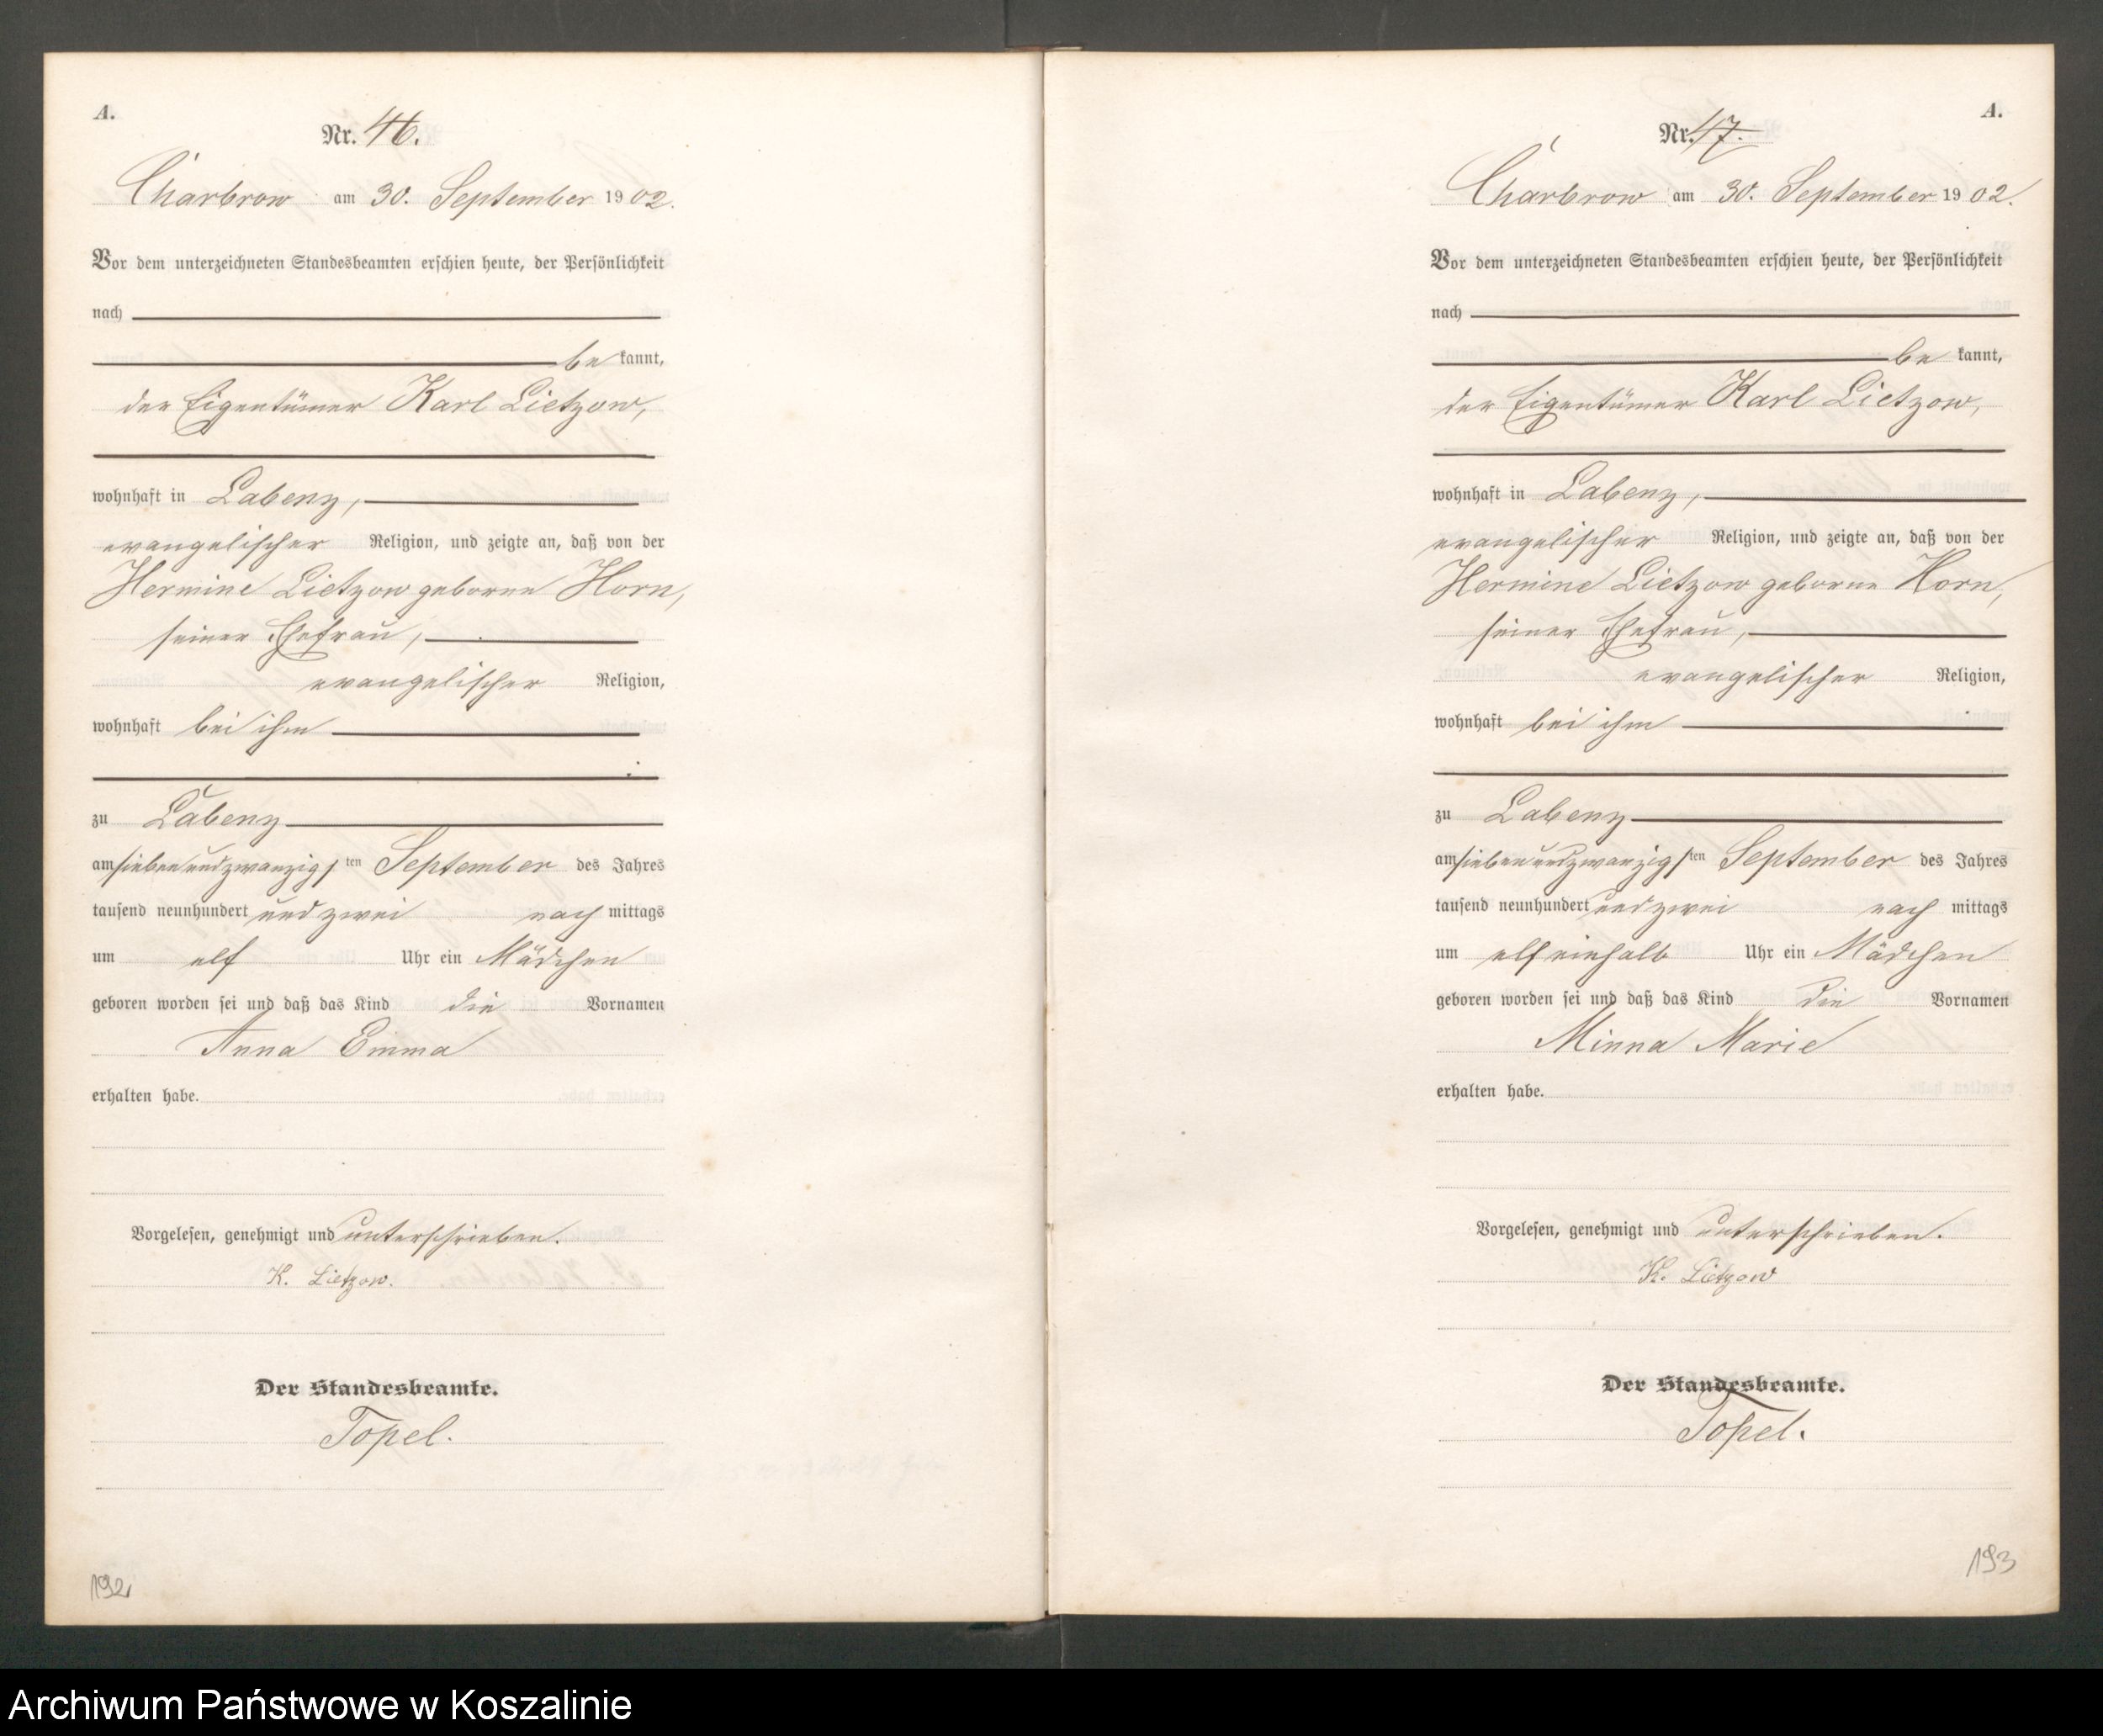 A.
Nr. 46.
Charbrow am 30. September 1902.
Vor dem unterzeichneten Standesbeamten erschien heute, der Persönlichkeit
nach
be kannt,
der Eigentümer Karl Lietzow,
wohnhaft in Labenz,
evangelischer Religion, und zeigte an, daß von der
Hermine Lietzow geborne Horn,
seiner Ehefrau,
evangelischer Religion,
wohnhaft bei ihm
zu Labenz
am siebenundzwanzigsten September des Jahres
tausend neunhundert und zwei nach mittags
um elf Uhr ein Mädchen
geboren worden sei und daß das Kind die Vornamen
Anna Emma
erhalten habe.
Vorgelesen, genehmigt und unterschrieben.
K. Lietzow.
Der Standesbeamte.
Topel.
192
A.
Nr. 47.
Charbrow am 30. September 1902.
Vor dem unterzeichneten Standesbeamten erschien heute, der Persönlichkeit
nach
be kannt,
der Eigentümer Karl Lietzow,
wohnhaft in Labenz,
evangelischer Religion, und zeigte an, daß von der
Hermine Lietzow geborne Horn,
seiner Ehefrau,
evangelischer Religion,
wohnhaft bei ihm
zu Labenz
am siebenundzwanzigsten September des Jahres
tausend neunhundert und zwei nach mittags
um elf einhalb Uhr ein Mädchen
geboren worden sei und daß das Kind die Vornamen
Minna Marie
erhalten habe.
Vorgelesen, genehmigt und unterschrieben.
K. Lietzow
Der Standesbeamte.
Topel.
193
Archiwum Państwowe w Koszalinie